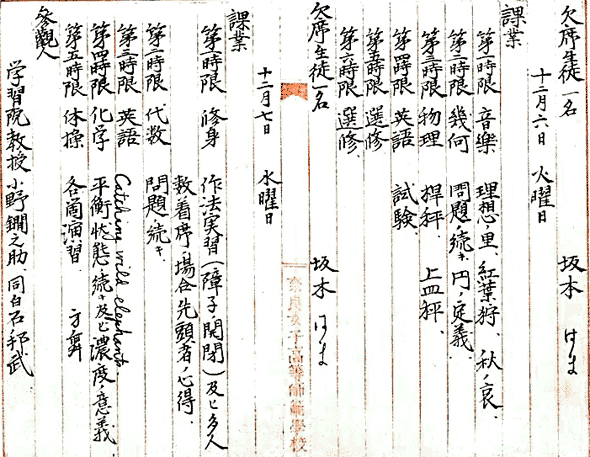 欠席生徒一名 坂本 はま
十二月六日 火曜日
課業
第一時限 音樂 理想ノ里、紅葉狩、秋ノ哀、
第二時限 幾何 問題ノ続キ 円ノ定義
第三時限 物理 桿秤、上皿秤、
第四時限 英語 試験、
第五時限 選修
第六時限 選修、
欠席生徒一名 坂本 はま
奈良女子高等師範學校
十二月七日 水曜日
課業
第一時限 修身 作法実習(障子ノ開閉)及ビ多人
数着席ノ場合先頭者ノ心得、
第二時限 代数 問題ノ続キ
第三時限 英語 Catching wild elephants
第四時限 化学 平衡状態ノ続キ及ビ濃度ノ意義
第五時限 体操 各個演習 方舞
参觀人
学習院教授 小野鐗之助 同白石邦武